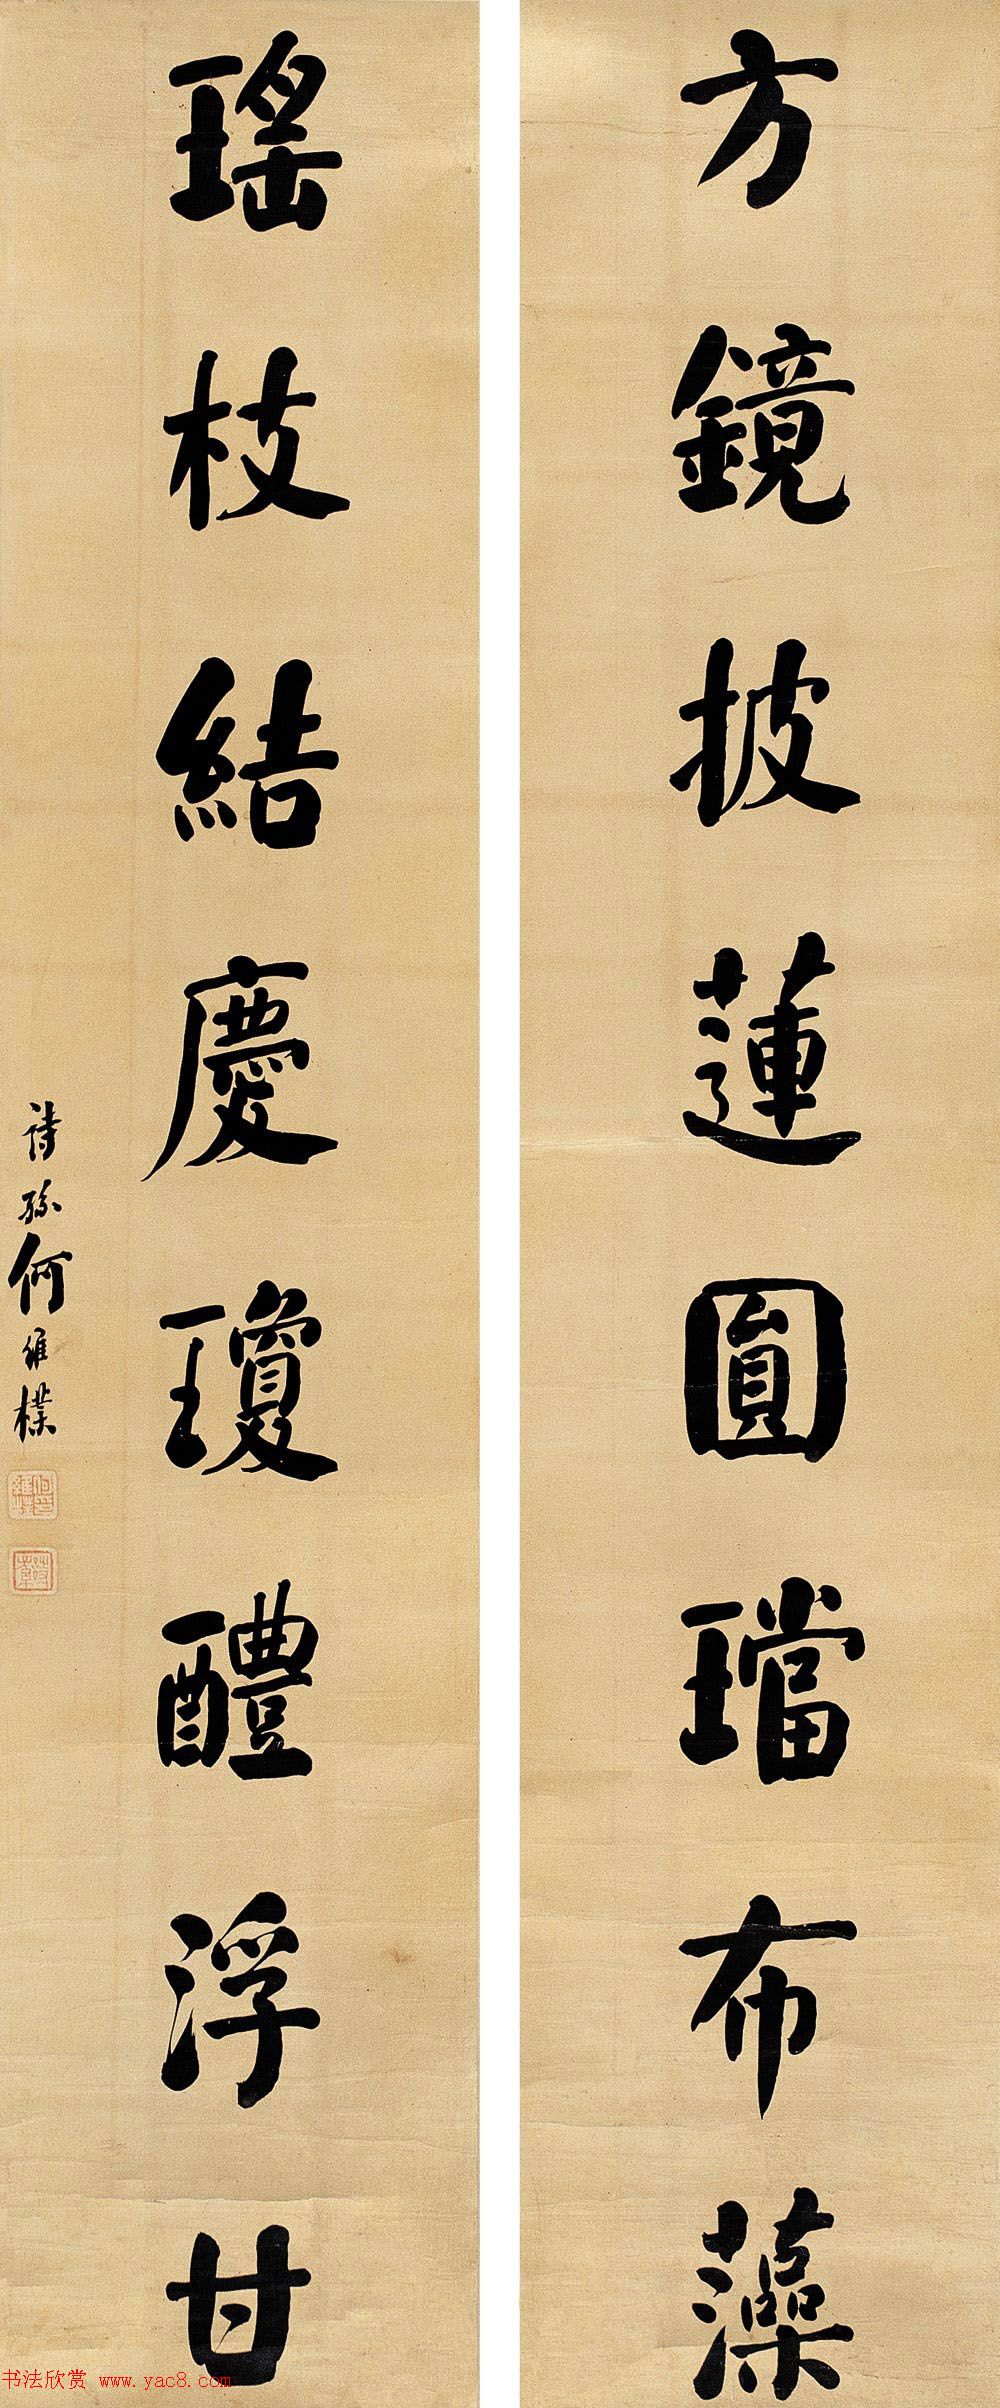 方鏡披蓮圓璫布藻
瑤枝結慶瓊醴浮甘
詩孫何維樸
书法欣赏 www.yac8.com